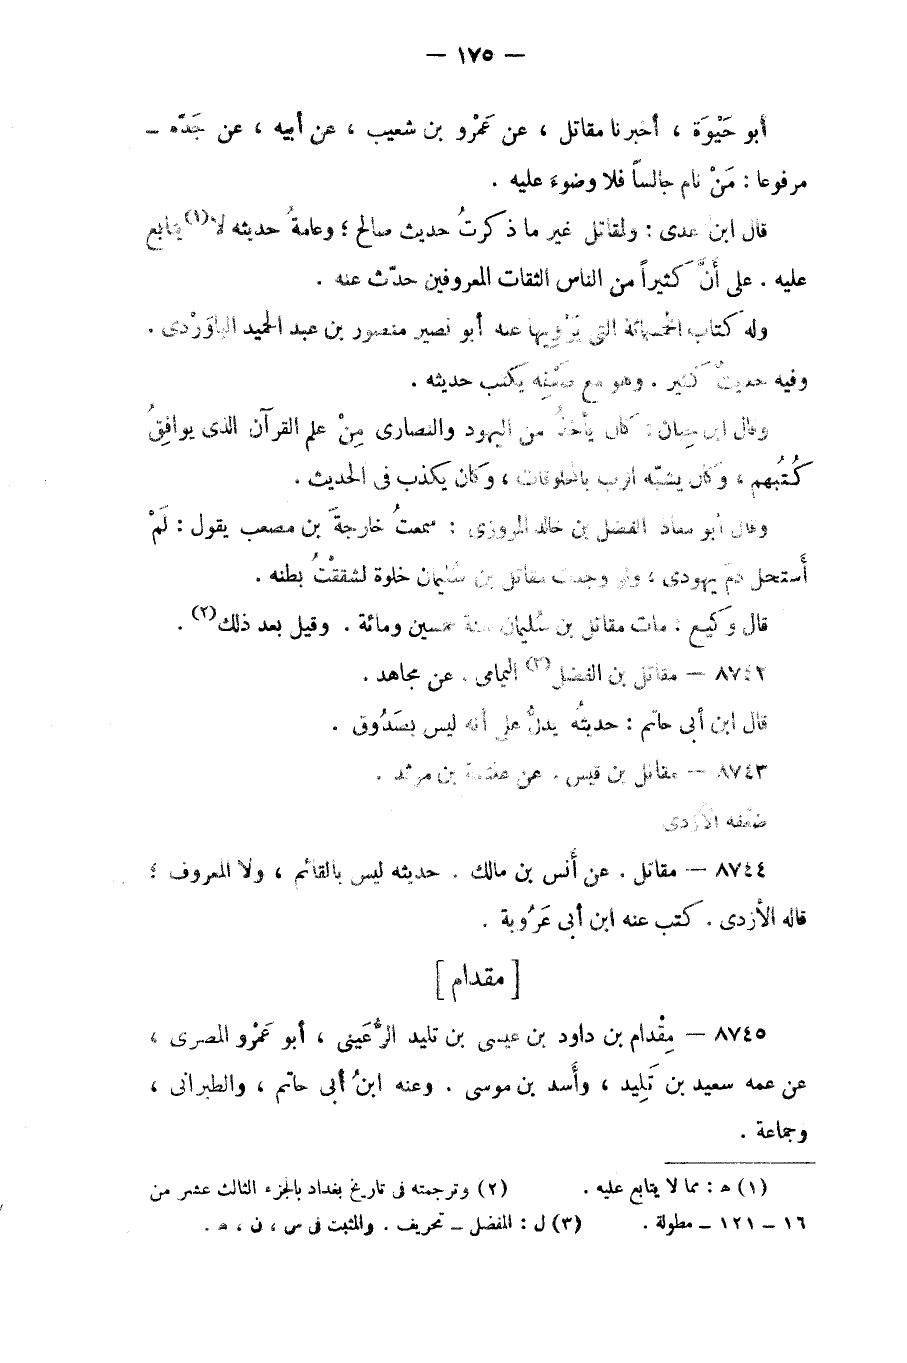 — ١٧٥ —
أبو حَيْوَة ، أخبرنا مقاتل ، عن عَمْرو بن شعيب ، عن أبيه ، عن جَدّه –
مرفوعا : مَنْ نام جالساً فلا وضوءَ عليه .
قال ابن عدى : ولمقاتل غير ما ذكرتُ حديث صالح ؛ وعامةُ حديثه لا(١) يتابع
عليه . على أنَّ كثيراً من الناس الثقات المعروفين حدّث عنه .
وله كتاب الخمسمائة التى يَرْويها عنه أبو نصير منصور بن عبد الحميد الباوَرْدى .
وفيه حديثٌ كثير . وهو مع ضَعْفِه يكتب حديثه .
وقال ابن حبان : كان يأخذُ من اليهود والنصارى مِنْ علم القرآن الذى يوافقُ
كُتُبهم ، وكان يشبّه الرب بالمخلوقات ، وكان يكذب فى الحديث .
وقال أبو معاذ الفضل بن خالد المروزى : سمعتُ خارجةَ بن مصعب يقول : لَمْ
أَستحل دمَ يهودى ، ولو وجدت مقاتل بن سُليمان خلوة لشققْتُ بطنه .
قال وكيع : مات مقاتل بن سُليمان سنة خمسين ومائة . وقيل بعد ذلك(٢) .
٨٧٤٢ – مقاتل بن الفضل(٣) اليمامى . عن مجاهد .
قال ابن أبى حاتم : حديثُه يدلُّ على أنه ليس بصَدُوق .
٨٧٤٣ – مقاتل بن قيس . عن علقمة بن مرثد .
ضعّفه الأزدى
٨٧٤٤ – مقاتل . عن أَنس بن مالك . حديثه ليس بالقائم ، ولا المعروف ؛
قاله الأزدى . كتب عنه ابن أبى عَرُوبة .
[ مقدام ]
٨٧٤٥ – مِقْدام بن داود بن عيسى بن تليد الرُّعَينى ، أبو عَمْرو المصرى ،
عن عمه سعيد بن تَلِيد ، وأَسد بن موسى . وعنه ابنُ أبى حاتم ، والطبرانى ،
وجماعة .
(١) ه : مما لا يتابع عليه . (٢) وترجمته فى تاريخ بغداد بالجزء الثالث عشر من
١٦ – ١٢١ – مطولة . (٣) ل : المفضل – تحريف . والمثبت فى س ، ن ، ه .